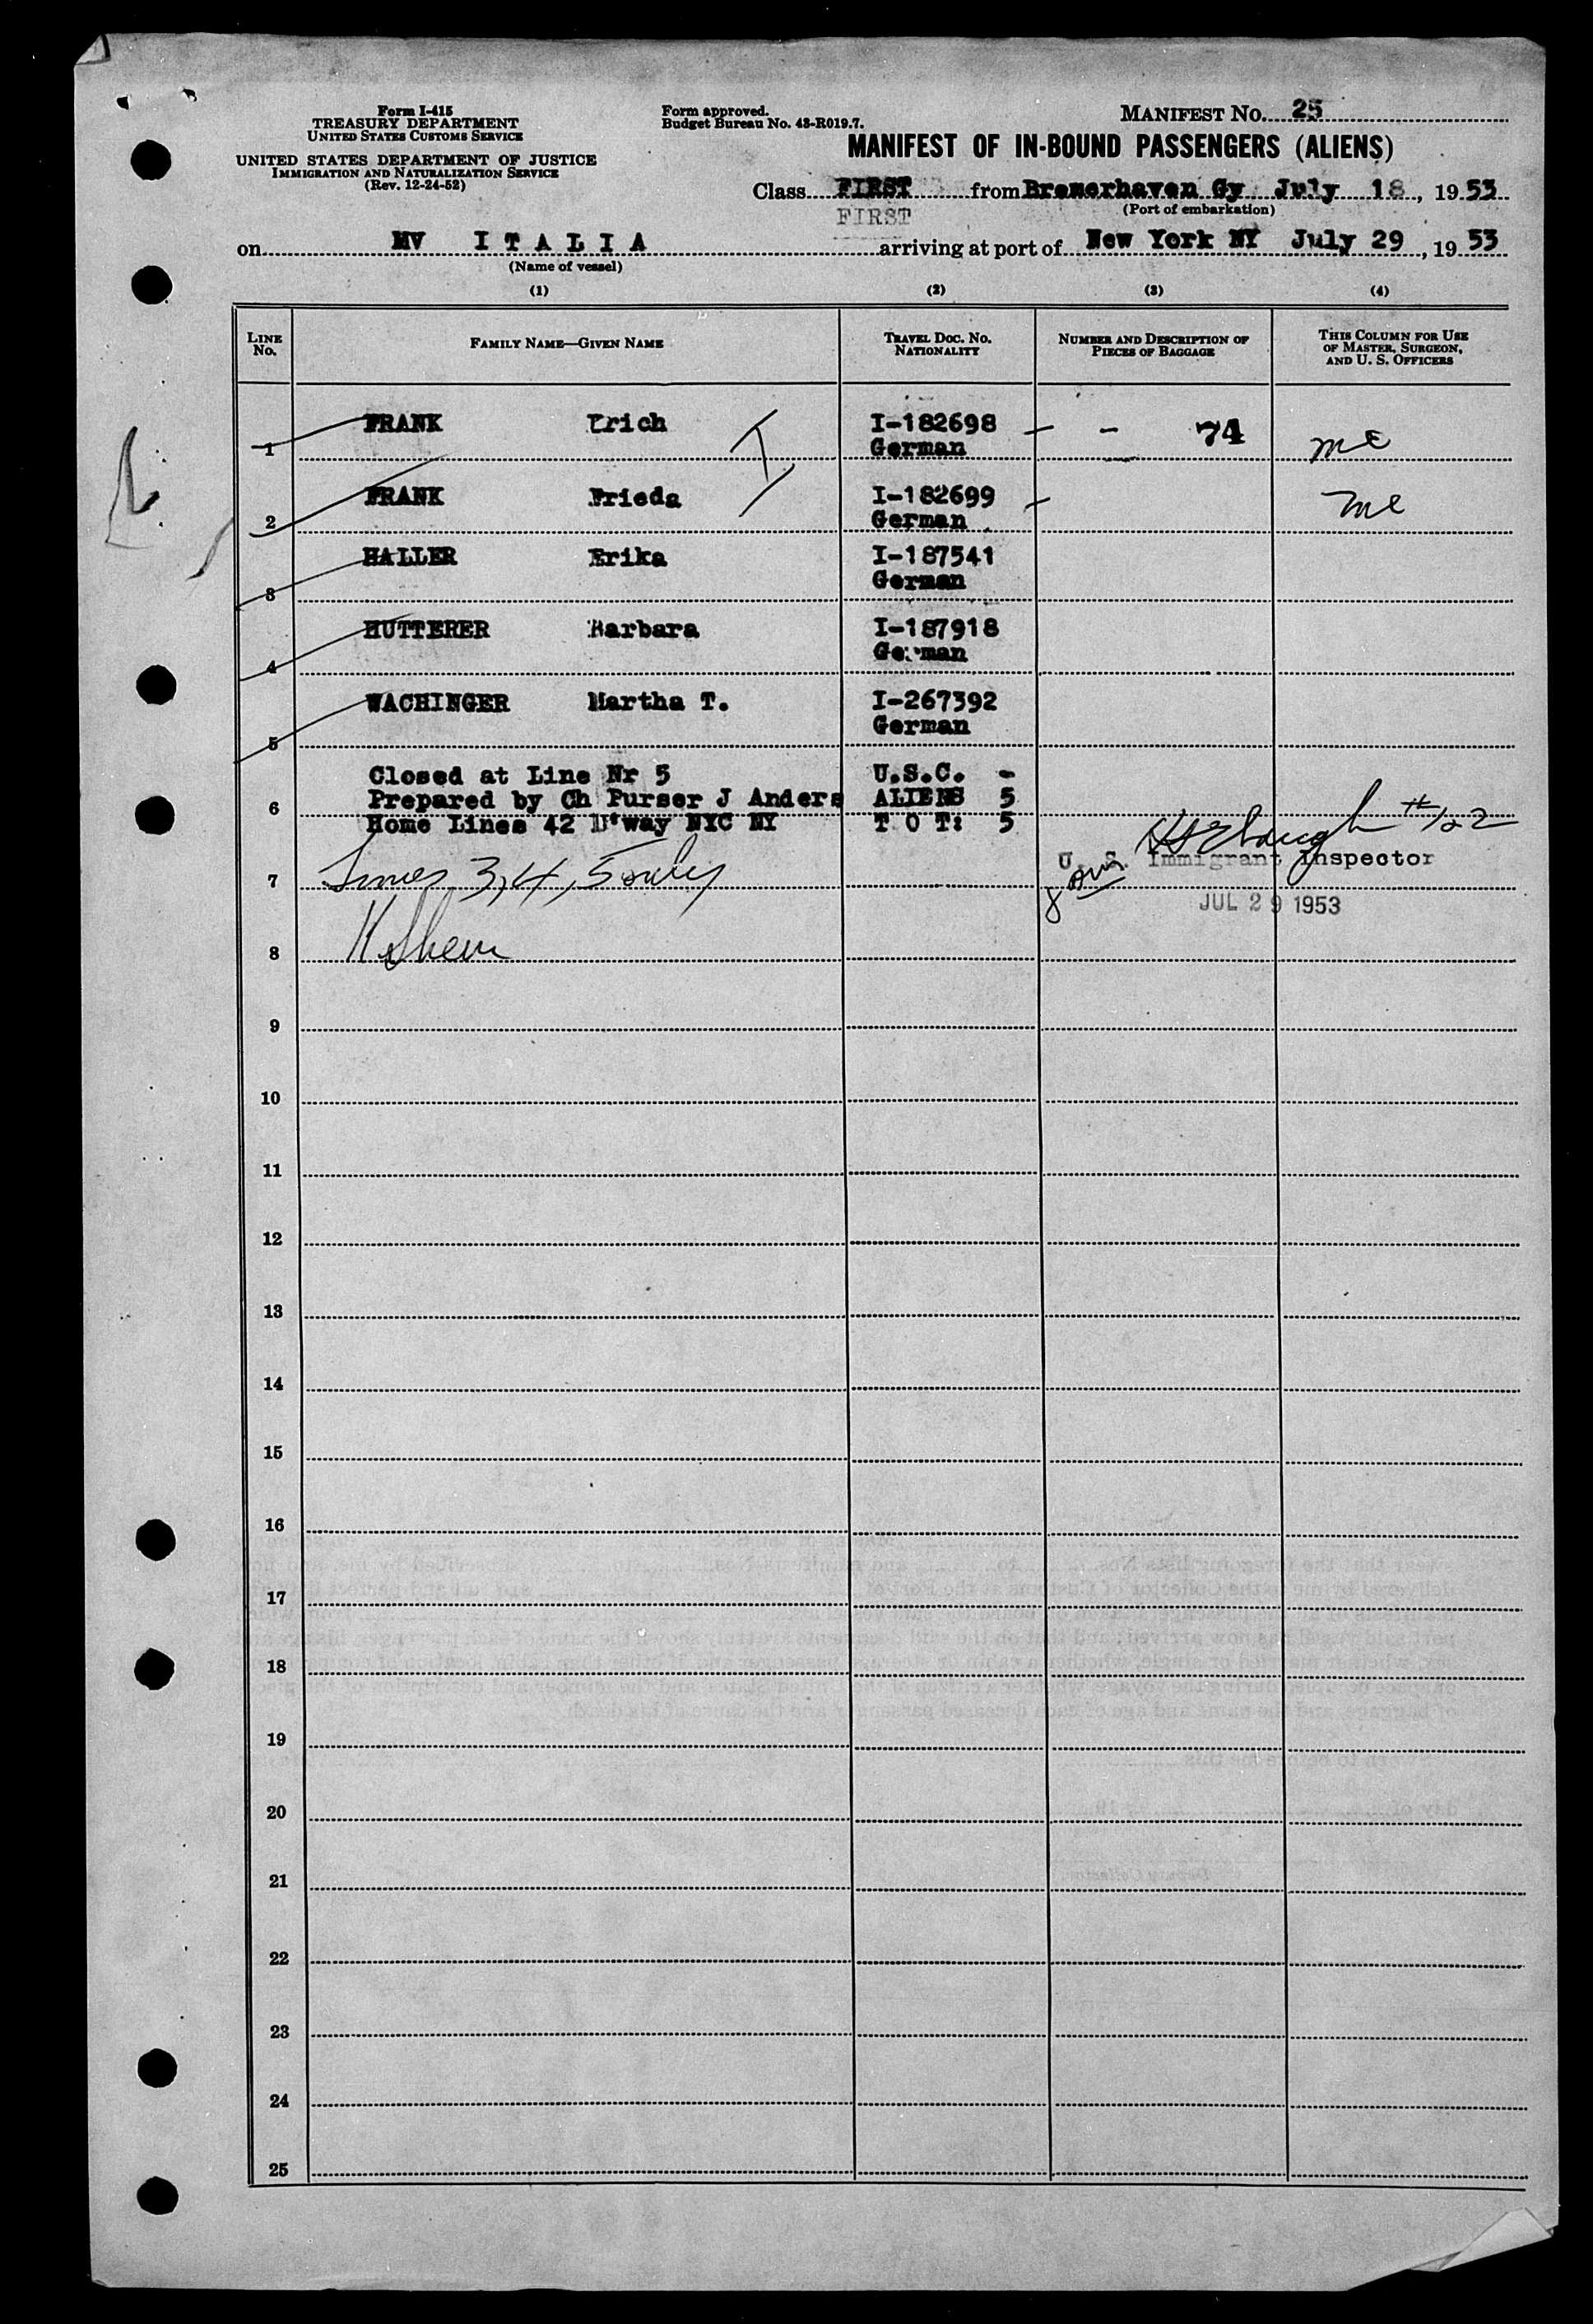 Form I-415
TREASURY DEPARTMENT
UNITED STATES CUSTOMS SERVICE
UNITED STATES DEPARTMENT OF JUSTICE
IMMIGRATION AND NATURALIZATION SERVICE
(Rev. 12-24-52)
Form approved.
Budget Bureau No. 43-R019.7.
MANIFEST NO. 25
MANIFEST OF IN-BOUND PASSENGERS (ALIENS)
Class FIRST from Bremerhaven Gy July 18, 1953
(Port of embarkation)
FIRST
on MV ITALIA arriving at port of New York NY July 29, 1953
(Name of vessel)
(1) (2) (3) (4)
LINE NO. FAMILY NAME—GIVEN NAME TRAVEL DOC. NO. NATIONALITY NUMBER AND DESCRIPTION OF PIECES OF BAGGAGE THIS COLUMN FOR USE OF MASTER, SURGEON, AND U. S. OFFICERS
1 FRANK Erich I-182698 - 74 me
German
2 FRANK Frieda I-182699 me
German
3 HALLER Erika I-187541
German
4 HUTTERER Barbara I-187918
German
5 WACHINGER Martha T. I-267392
German
Closed at Line Nr 5 U.S.C. -
6 Prepared by Ch Purser J Anders ALIENS 5
Home Lines 42 B'way NYC NY T O T: 5
#122
U. S. Immigrant Inspector
7 Lines 3,4,5 only
JUL 29 1953
8
9
10
11
12
13
14
15
16
17
18
19
20
21
22
23
24
25